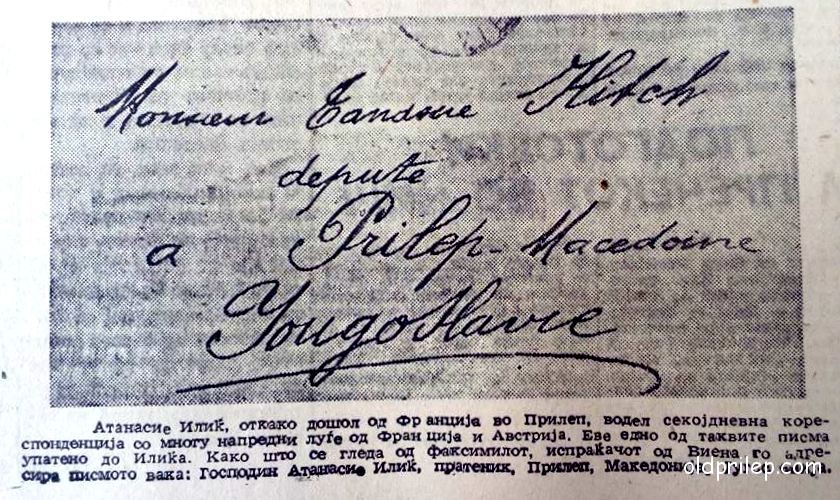 Monsieur Tanasie Ilitch
depute
a Prilep - Macedoine
Yougoslavie
Атанасие Илиќ, откако дошол од Франција во Прилеп, водел секојдневна коре-
спонденција со многу напредни луѓе од Франција и Австрија. Еве едно од таквите писма
упатено до Илиќа. Како што се гледа од факсимилот, испраќачот од Виена го адре-
сира писмото вака: Господин Атанасие Илиќ, пратеник, Прилеп, Македони
oldprilep.com